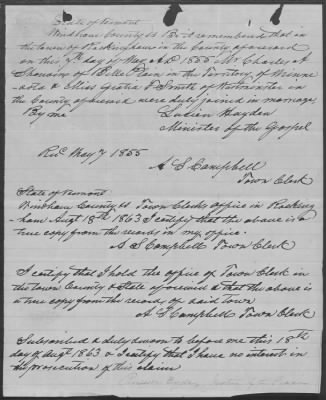 State of Vermont
Windham County ss Be it remembered that in
the town of Rockingham in the County aforesaid
on this 7th day of May A.D. 1855 Mr Charles A
of Belle Plain in the Territory of Minne
-sota & Miss F Smith of Westminster in
the County aforesaid were duly joined in marriage
By me Lucien Hayden
Minister of the Gospel
Recd May 7 1855
A S Campbell
Town Clerk
State of Vermont
Windham County ss Town Clerks office in Rocking
-ham Augt 18th 1863 I certify that the above is a
true copy from the records in my office.
A S Campbell Town Clerk
I certify that I hold the office of Town Clerk in
the town County & State aforesaid & that the above
is a true copy from the records of said town
A S Campbell Town Clerk
Subscribed & duly sworn to before me this 18th
day of Augt 1863 & I certify that I have no interest in
the prosecution of this claim
Justice of the Peace